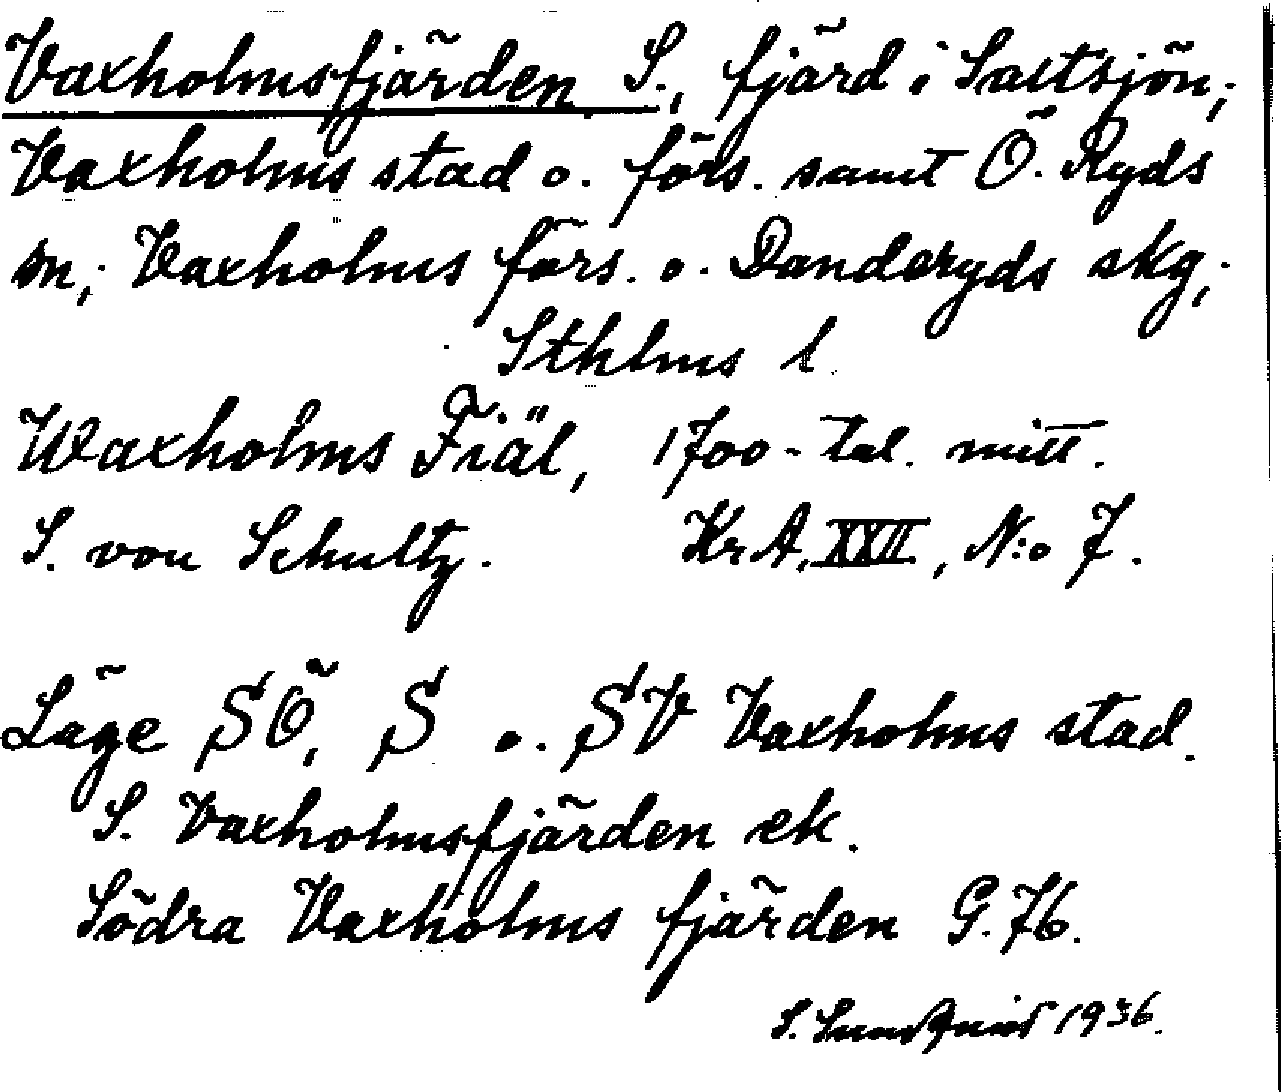 Vaxholmsfjärden, S., fjärd i Saltsjön;
Vaxholms stad o. förs. samt Ö. Ryds
sn; Vaxholms förs. o. Danderyds skg;
Sthlms l.
Waxholms Fiäl, 1700-tal. mitt.
S. von Schultz. KrA, XXII, N:o 7.
Läge SÖ, S o. SV Vaxholms stad.
S. Vaxholmsfjärden ek.
Södra Vaxholms fjärden G.76.
S. Lundquist 1936.